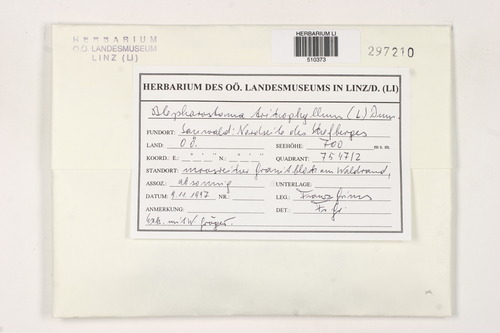 HERBARIUM
O.Ö. LANDESMUSEUM
LINZ (LI)
HERBARIUM LI
510373
297210
HERBARIUM DES OÖ. LANDESMUSEUMS IN LINZ/D. (LI)
Blepharostoma trichophyllum (L.) Dum.
FUNDORT: Sauwald: Nordseite des
LAND: OÖ. SEEHÖHE: 700 m s. m.
KOORD.: E.: ° ' " N.: ° ' " QUADRANT: 7547/2
STANDORT: moosreicher Granitblock am Waldrand,
ASSOZ.: absonnig UNTERLAGE:
DATUM: 9.11.1997 NR.: LEG.: Franz Grims
ANMERKUNG: DET.: Fr. Gr.
Exk. mit W.